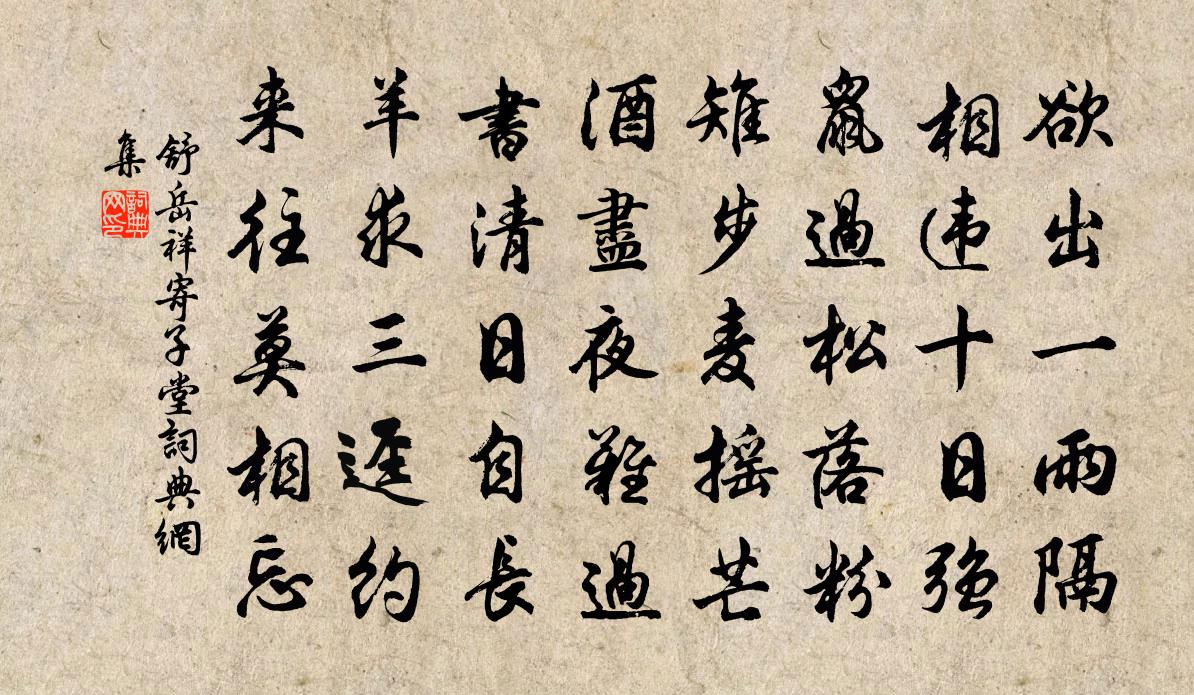 欲出一雨隔
相违十日强
鼠過松落粉
雉步麦摇芒
酒盡夜難過
書清日自長
羊求三逕約
来往莫相忘
舒岳祥寄子堂詞典網
集
詞典
网印